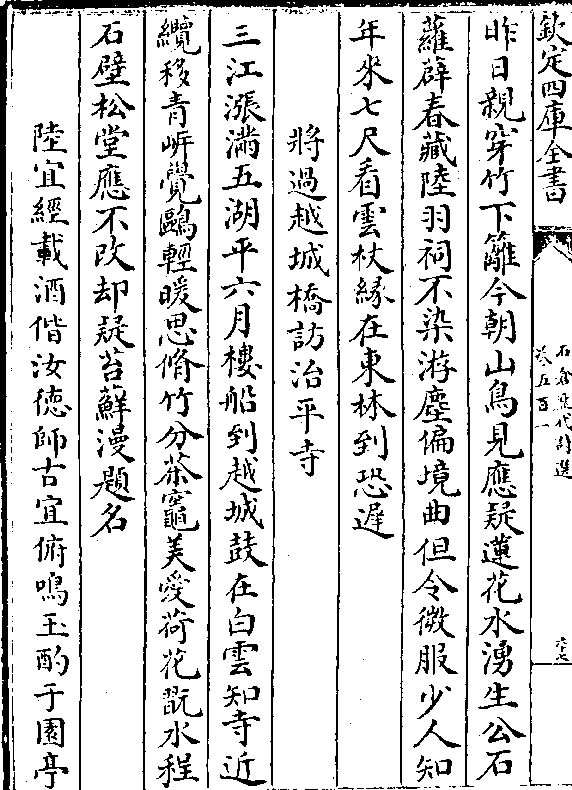 欽定四庫全書
石倉歷代詩選
卷五百一
六十七
昨日親穿竹下籬今朝山鳥見應疑蓮花水湧生公石
蘿薜春藏陸羽祠不染游塵偏境曲但令微服少人知
年來七尺看雲杖緣在東林到恐遲
將過越城橋訪治平寺
三江漲滿五湖平六月樓船到越城鼓在白雲知寺近
纜移青岍覺鷗輕暖思脩竹分茶竈美愛荷花翫水程
石壁松堂應不改却疑苔蘚漫題名
陸宜經載酒偕汝德師古宜俯鳴玉酌于園亭